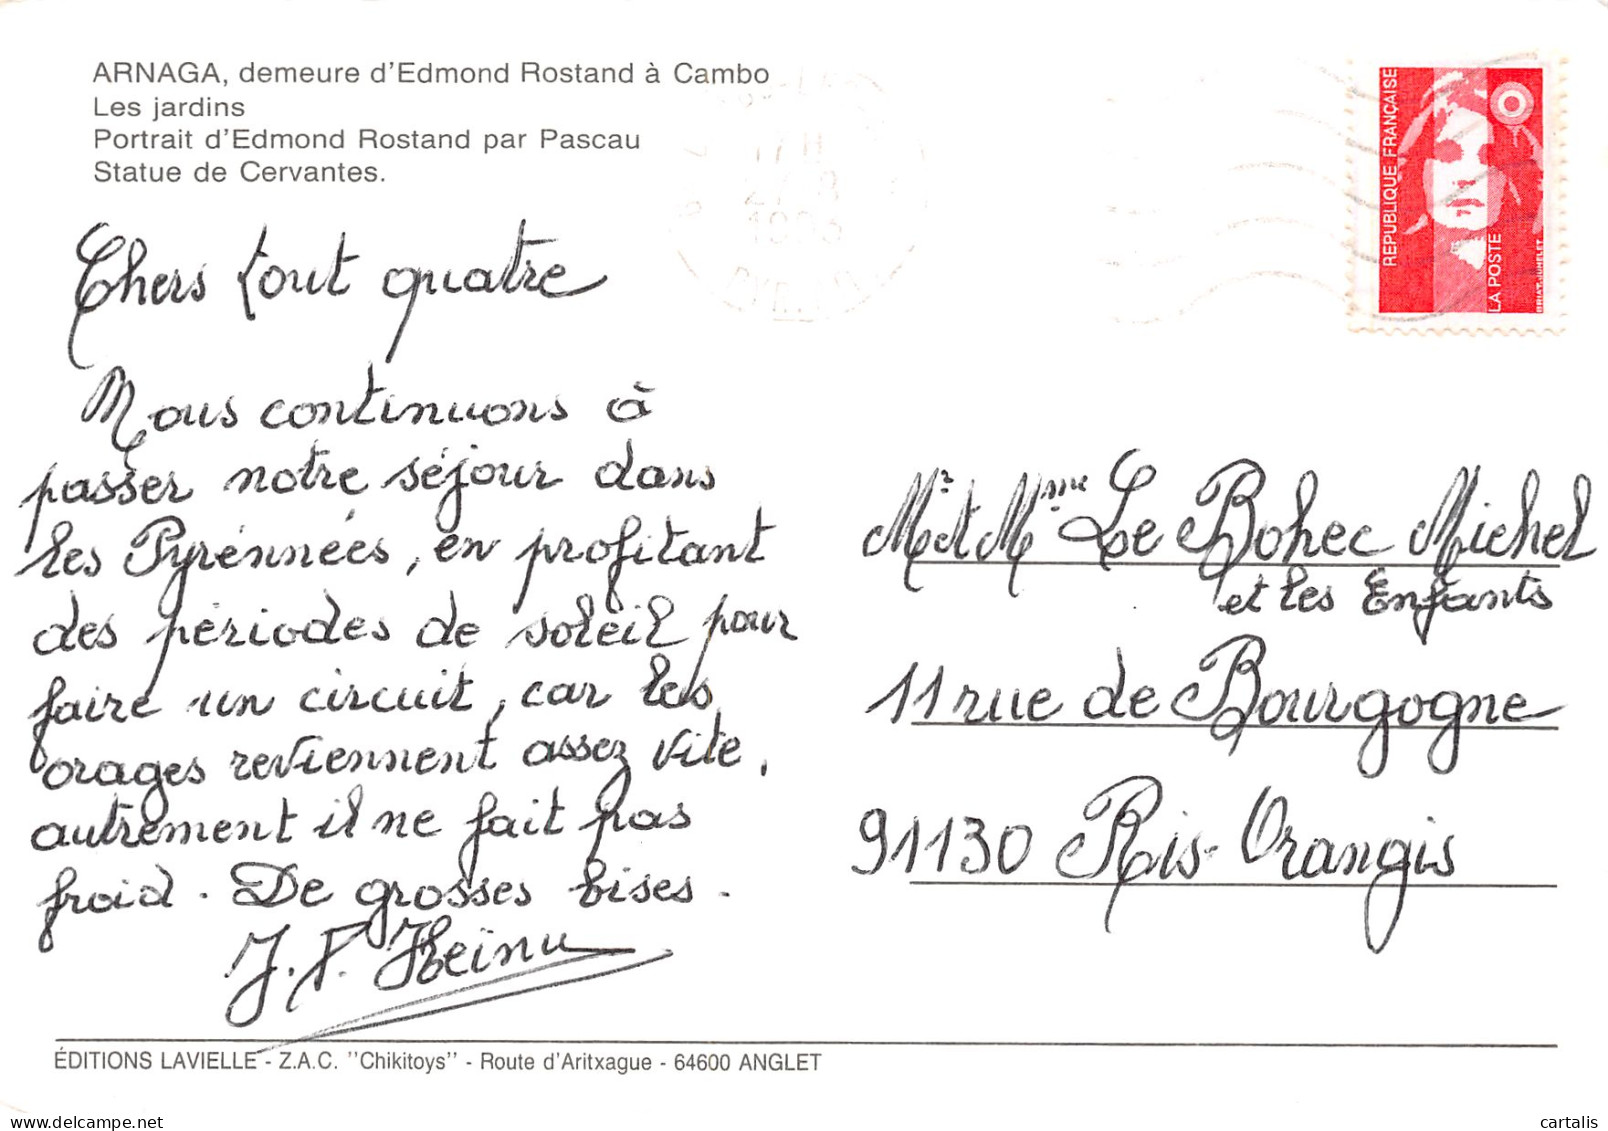 ARNAGA, demeure d'Edmond Rostand à Cambo
Les jardins
Portrait d'Edmond Rostand par Pascau
Statue de Cervantes.
17 H
1993
REPUBLIQUE FRANÇAISE
LA POSTE
BRIAT-JUMELET
Chers tout quatre
Nous continuons à
passer notre séjour dans
les Pyrénnées, en profitant
des périodes de soleil pour
faire un circuit, car les
orages reviennent assez vite,
autrement il ne fait pas
froid. De grosses bises.
J.P. Heinu
Mr et Mme Le Bohec Michel
et les Enfants
11 rue de Bourgogne
91130 Ris-Orangis
ÉDITIONS LAVIELLE - Z.A.C. "Chikitoys" - Route d'Aritxague - 64600 ANGLET
delcampe.net
cartalis